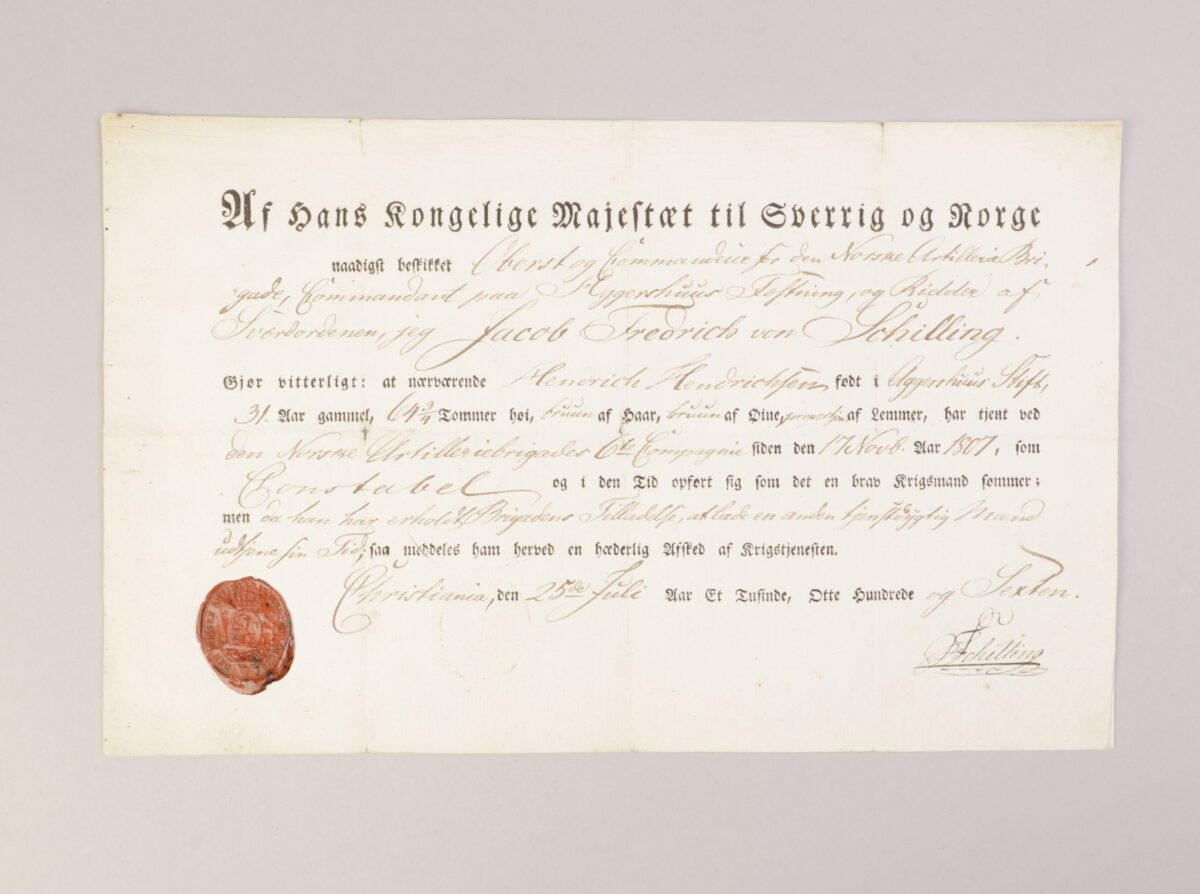 Af Hans Kongelige Majestæt til Sverrig og Norge
naadigst beskikket Oberst og Commandeur for den Norske Artillerie Bri-
gade, Commandant paa Aggershuus Fæstning, og Ridder af
Sværdordenen, jeg Jacob Fredrich von Schilling.
Gjør vitterligt: at nærværende Hendrich Hendrichsen født i Aggershuus Stift,
31. Aar gammel, 64 3/4 Tommer høi, bruun af Haar, bruun af Øine, af Lemmer, har tjent ved
den Norske Artilleriebrigades 6te Compagnie siden den 17 Novb. Aar 1807, som
Constabel og i den Tid opført sig som det en brav Krigsmand sømmer;
men da han har erholdt Brigadens Tilladelse, at lade en anden tjenstdygtig Mand
udtjene sin Tid; saa meddeles ham herved en hæderlig Afsked af Krigstjenesten.
Christiania, den 25de Juli Aar Et Tusinde, Otte Hundrede og Sexten.
Schilling